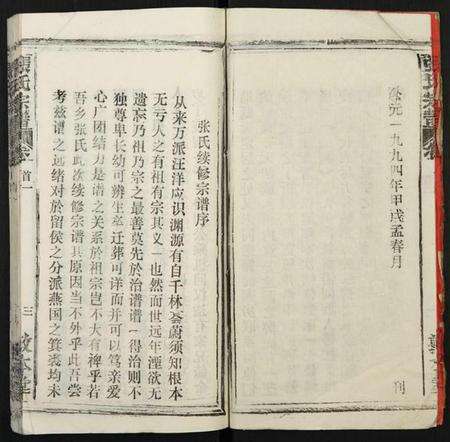 公元一九九四年甲戌孟春月
刊
张氏续修宗谱序
从来万派汪洋应识渊源有自千林荟蔚须知根本
无亏人之有祖有宗其义一也然而世远年湮欲无
遗忘乃祖乃宗之最善莫先於治谱谱一得治则不
独尊卑长幼可辨生卒迁葬可详而并可以笃亲爱
心广团结力是谱之关系於祖宗岂不大有裨乎若
吾乡张氏此次续修宗谱其原因当不外乎此吾尝
考兹谱之远绪对於留侯之分派燕国之箕裘均未
張氏宗譜
卷
首一
三